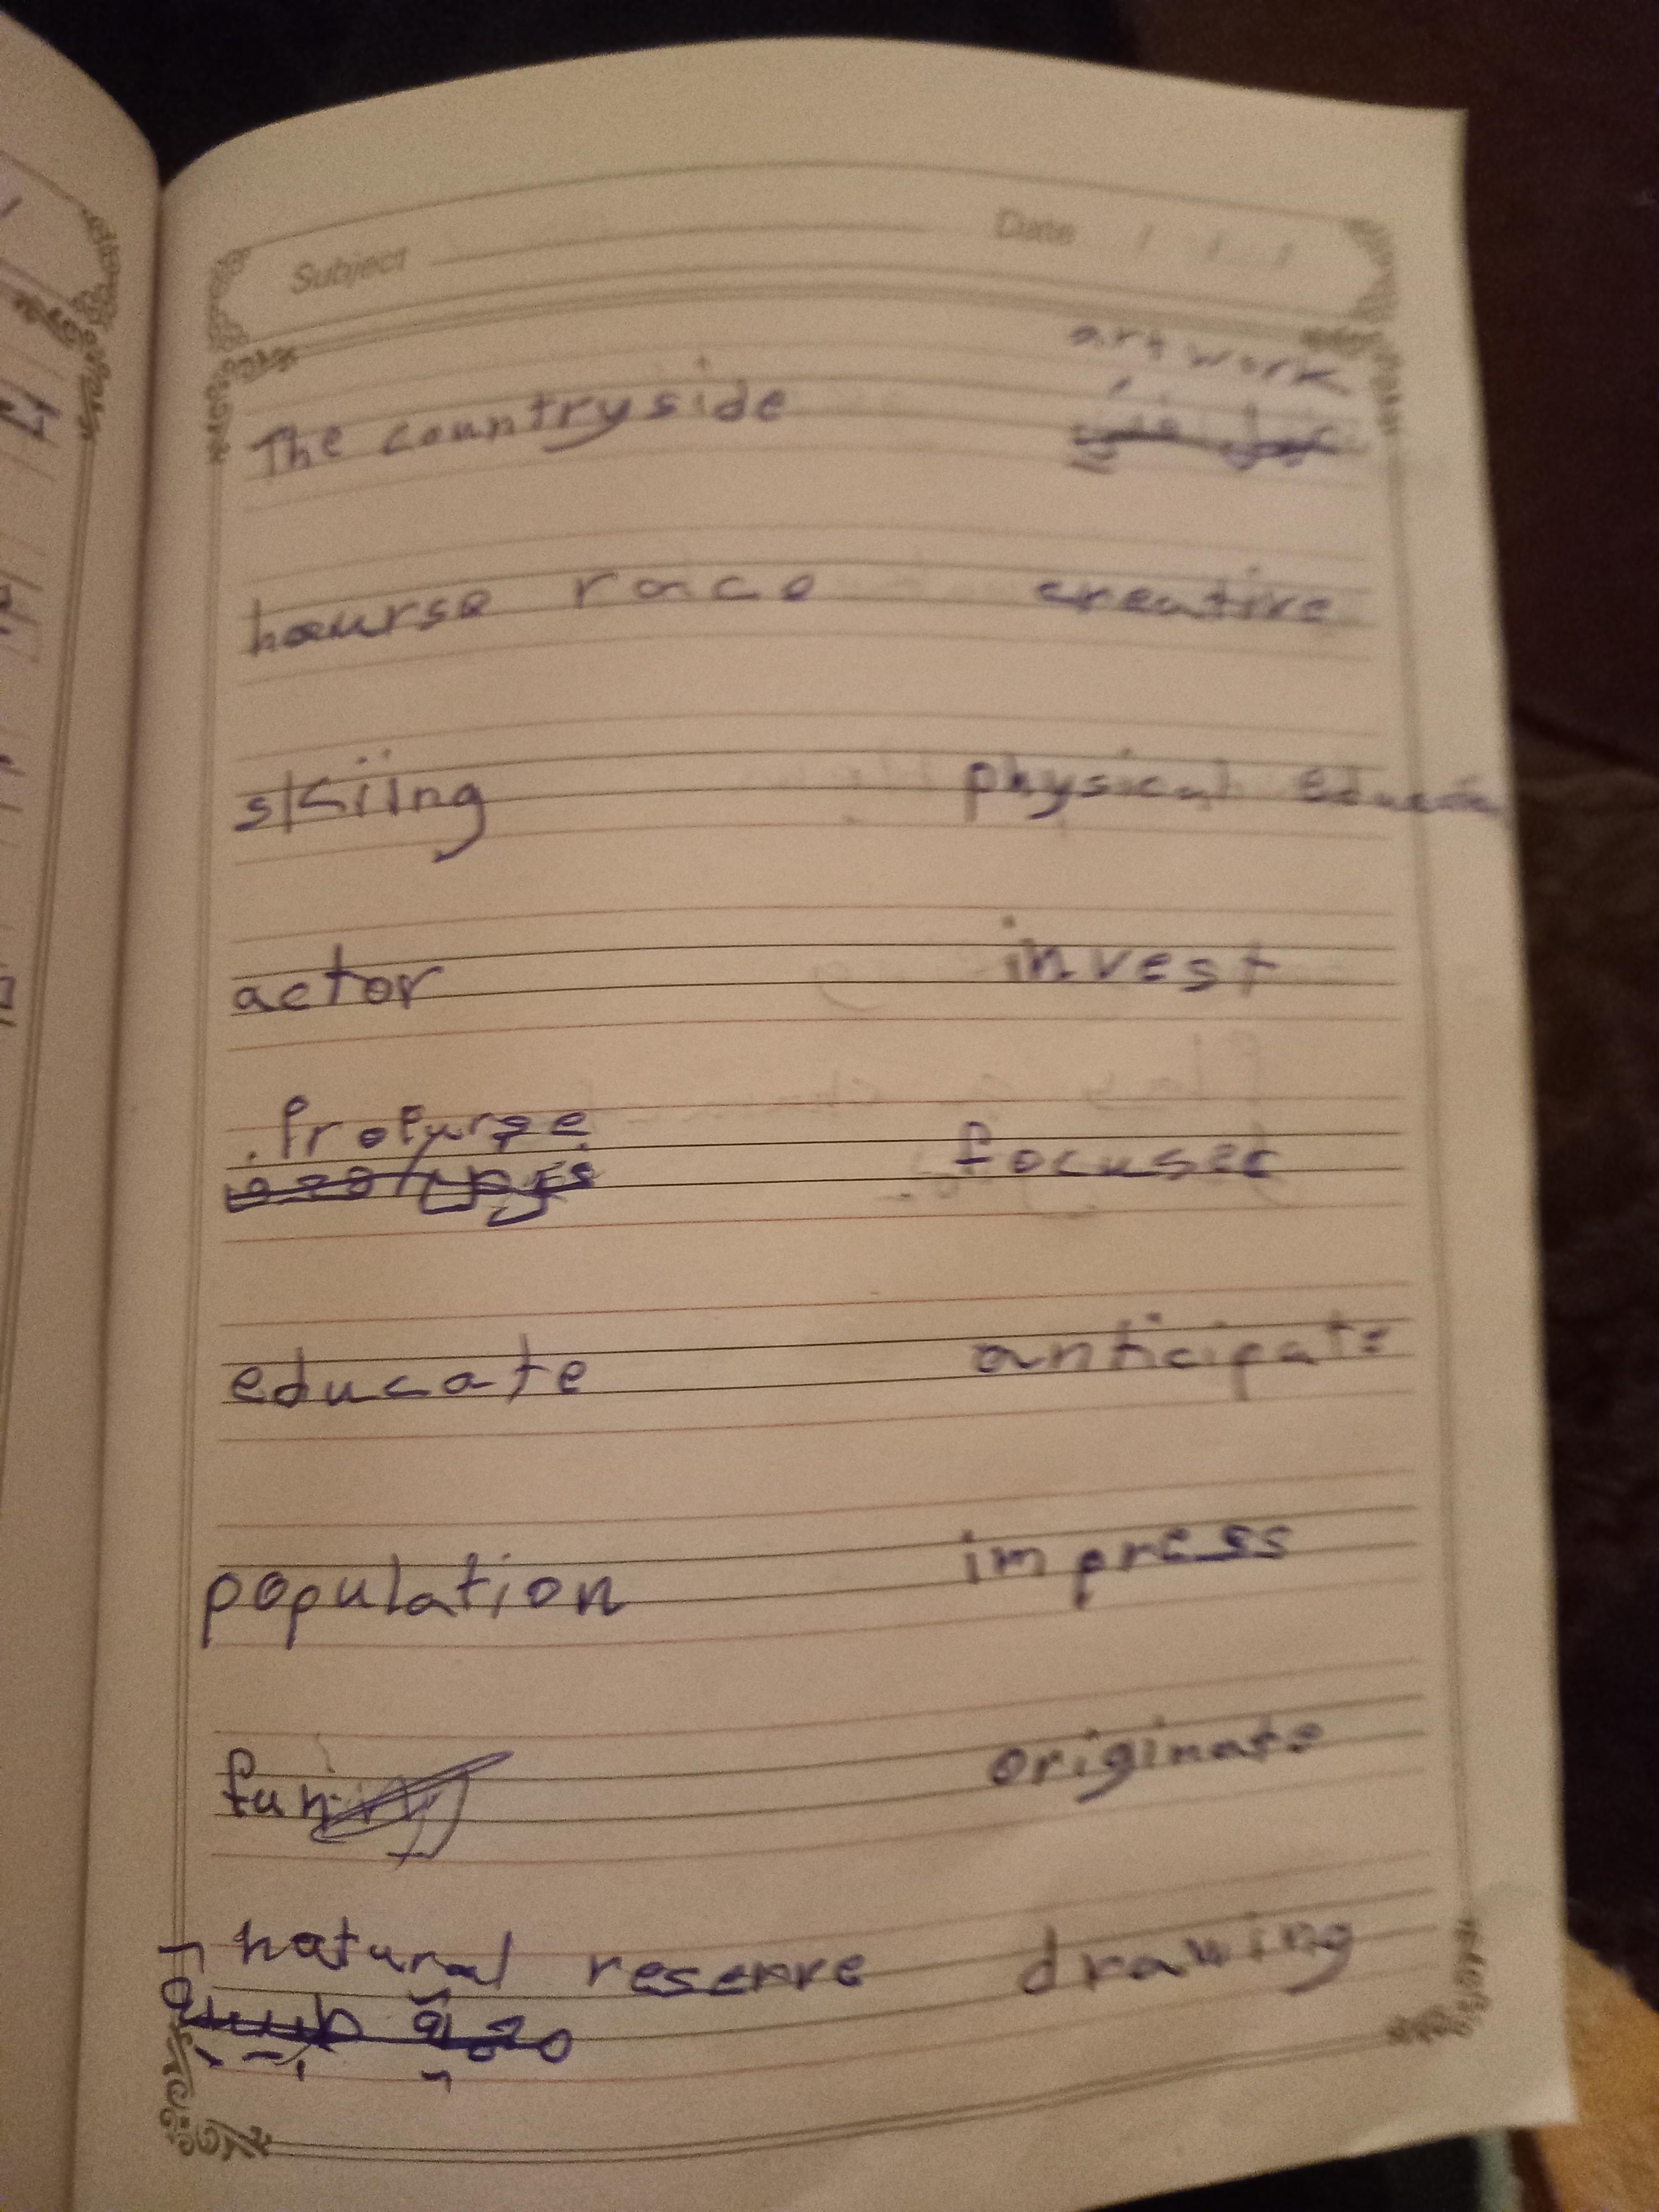 Subject Date / / /
art work
The countryside
hourse race creative
skiing physical
actor invest
focused
educate anticipate
population impress
fun originate
natural reserve drawing